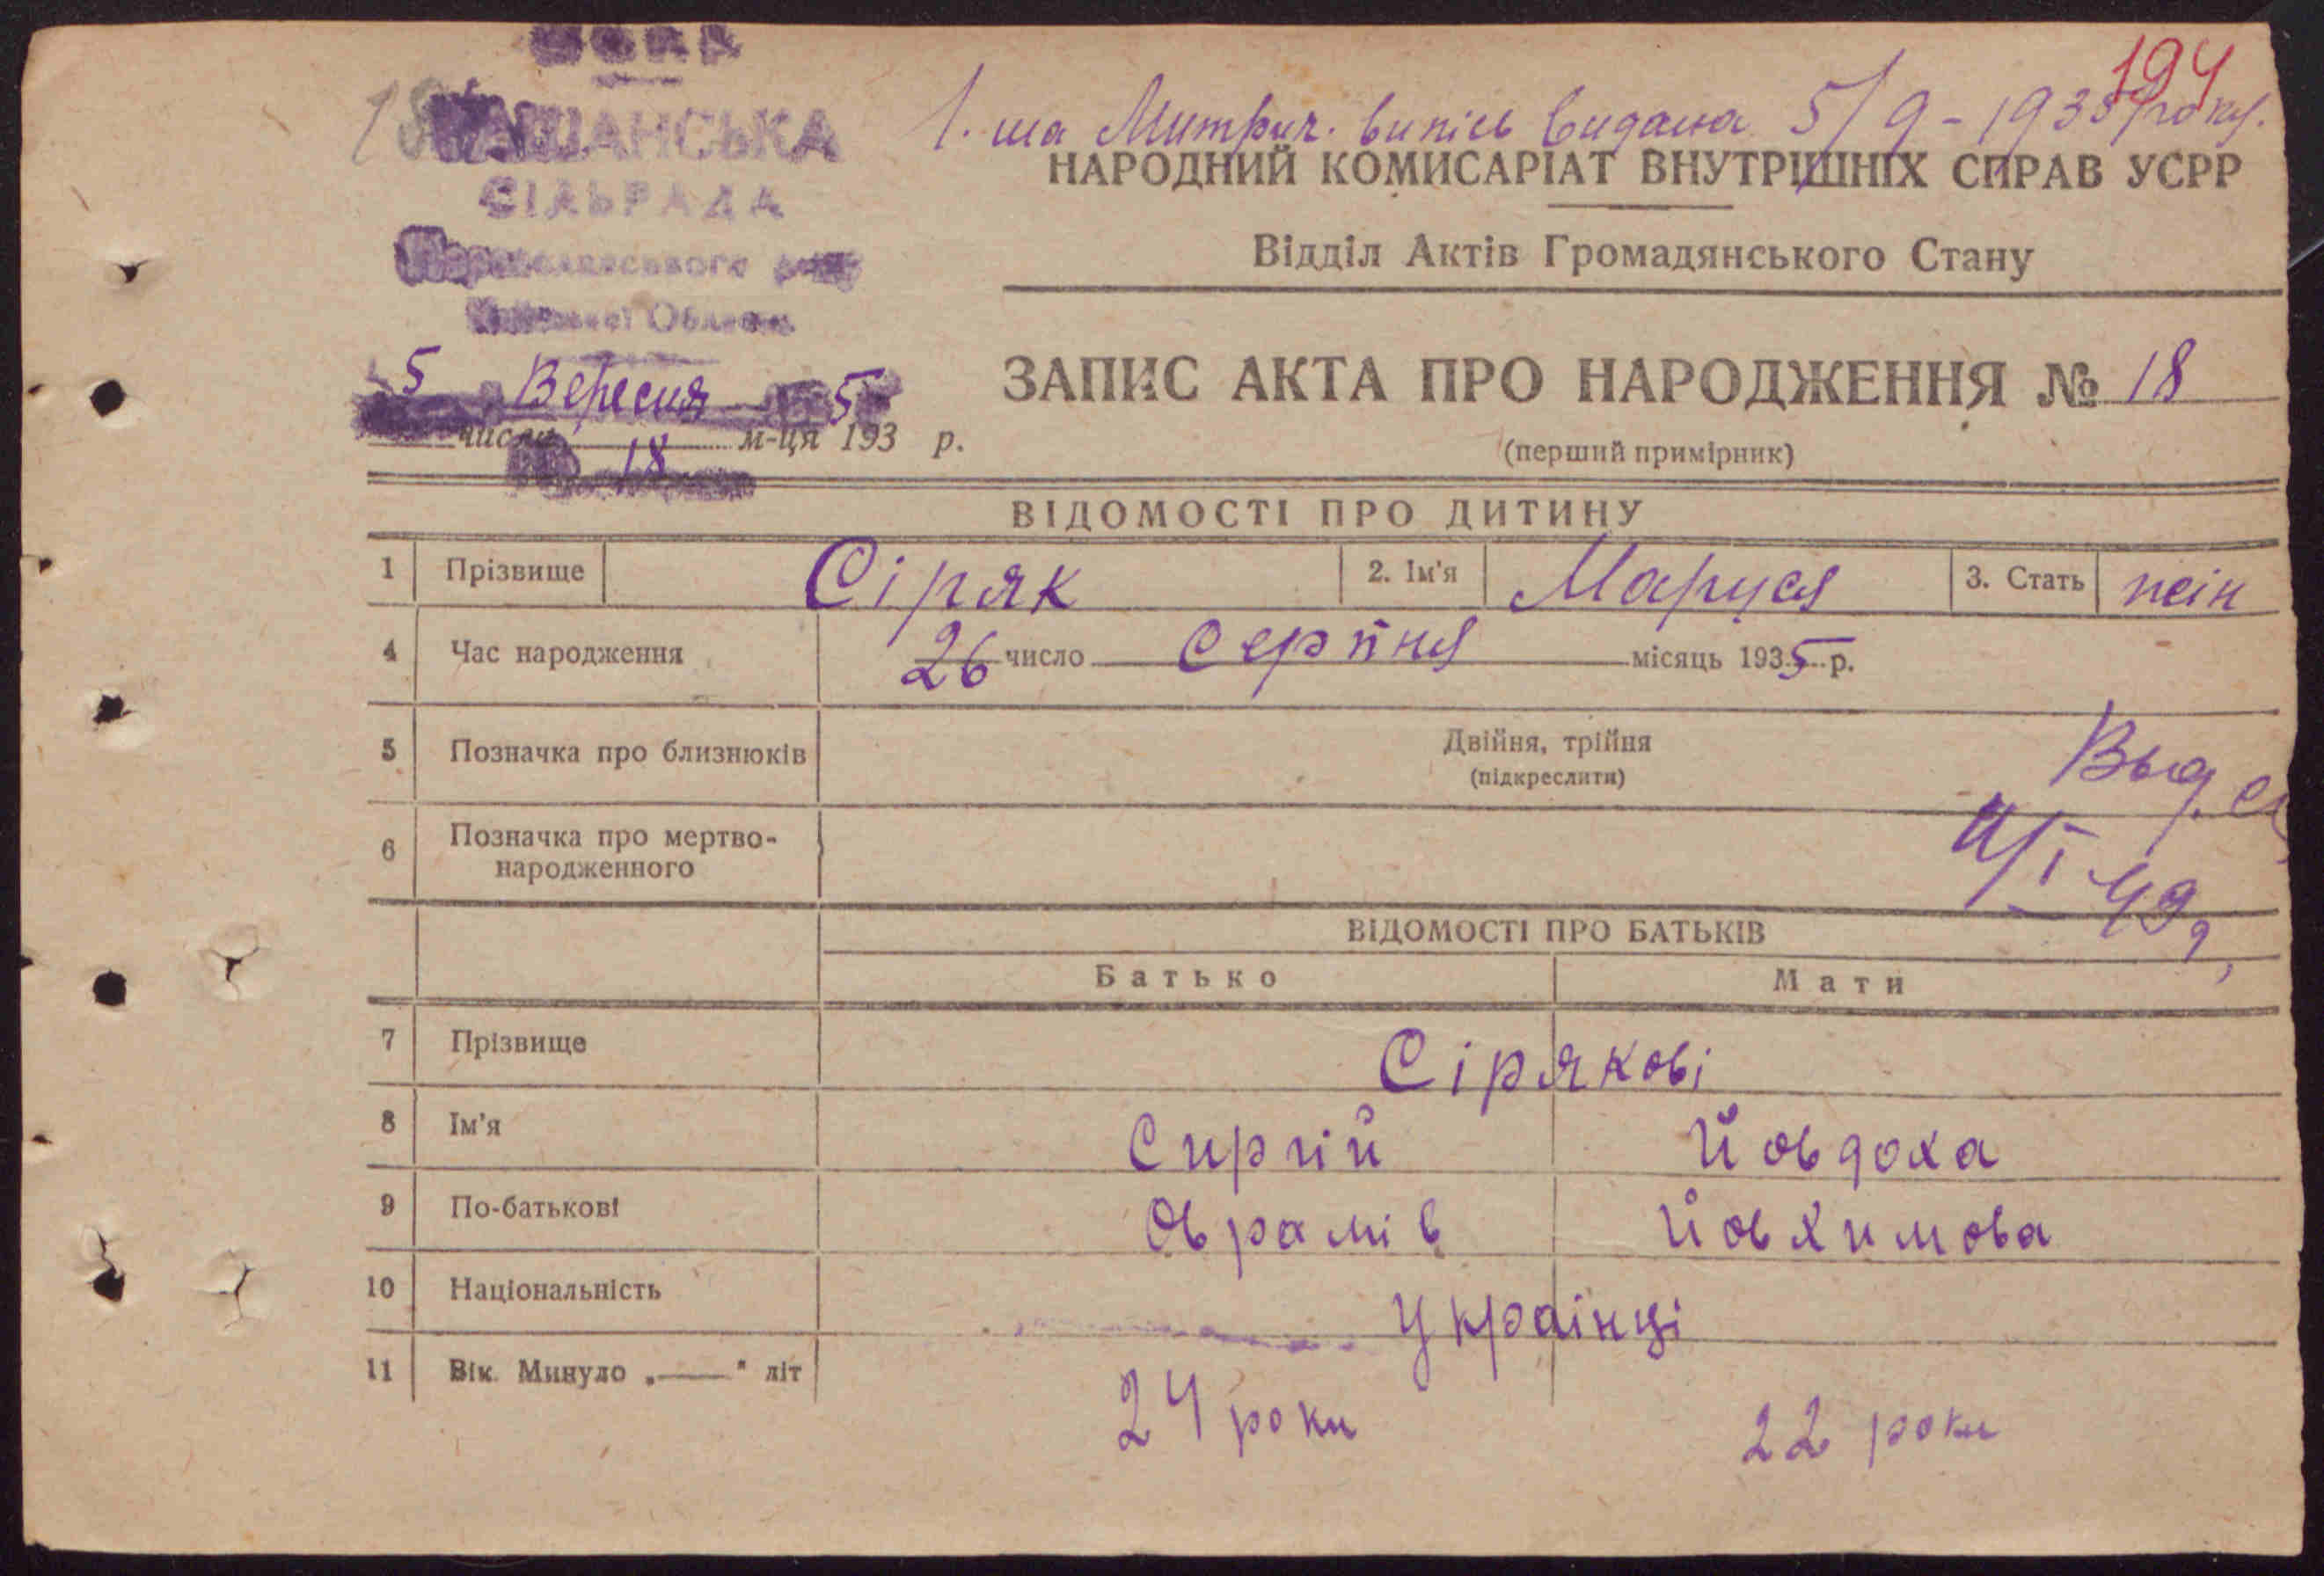 194
1. ша Митрич. випісь видана 5/9-1935 року.
СІЛЬРАДА
НАРОДНИЙ КОМИСАРІАТ ВНУТРІШНІХ СПРАВ УСРР
Відділ Актів Громадянського Стану
5 Вересня 5
числа м-ця 193 р.
18
ЗАПИС АКТА ПРО НАРОДЖЕННЯ № 18
(перший примірник)
ВІДОМОСТІ ПРО ДИТИНУ
1 Прізвище Сіряк 2. Ім'я Маруся 3. Стать жін
4 Час народження 26 число серпня місяць 1935 р.
5 Позначка про близнюків Двійня, трійня
(підкреслити)
Выд.
6 Позначка про мертво-
народженного
ВІДОМОСТІ ПРО БАТЬКІВ
Батько Мати
7 Прізвище Сірякові
8 Ім'я Сиргій Йовдоха
9 По-батькові Оврамів Йовхимова
10 Національність Українці
11 Вік. Минуло „—" літ 24 роки 22 роки